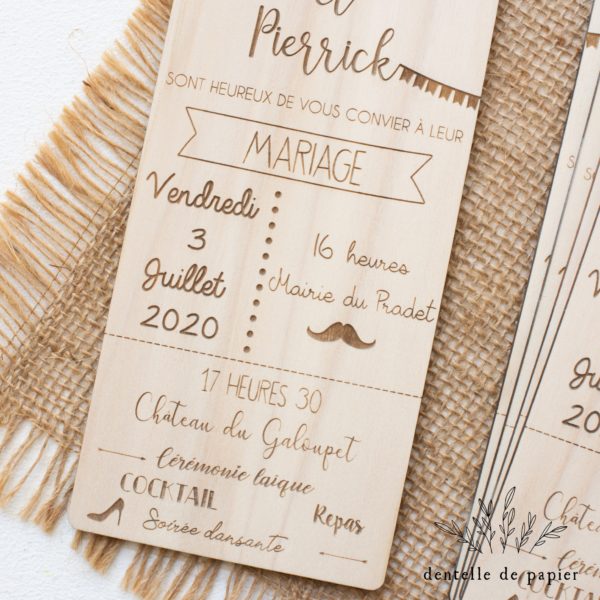 et
Pierrick
SONT HEUREUX DE VOUS CONVIER À LEUR
MARIAGE
Vendredi
3
Juillet
2020
16 heures
Mairie du Pradet
17 HEURES 30
Château du Galoupet
Cérémonie laïque
COCKTAIL
Repas
Soirée dansante
dentelle de papier